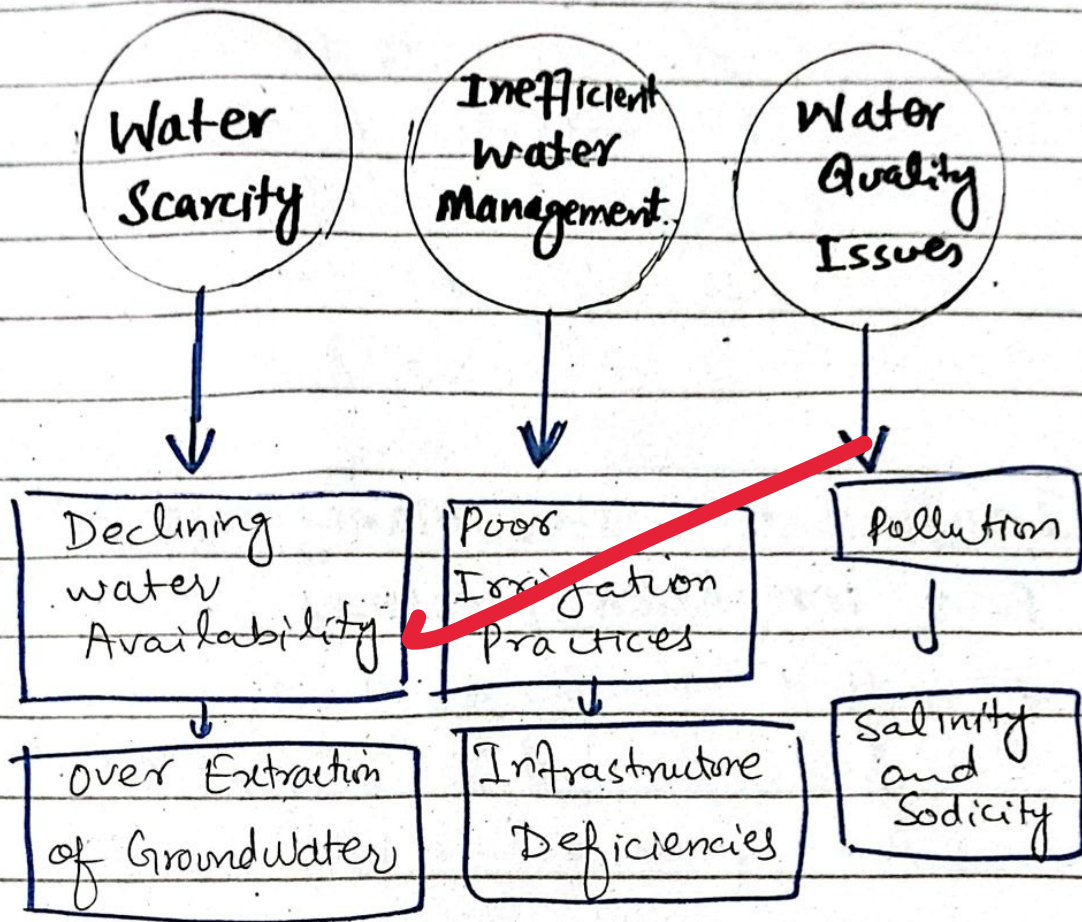 Water
Scarcity
Inefficient
Water
Management.
Water
Quality
Issues
Declining
water
Availability
Poor
Irrigation
Practices
Pollution
over Extraction
of GroundWater
Infrastructure
Deficiencies
Salinity
and
Sodicity